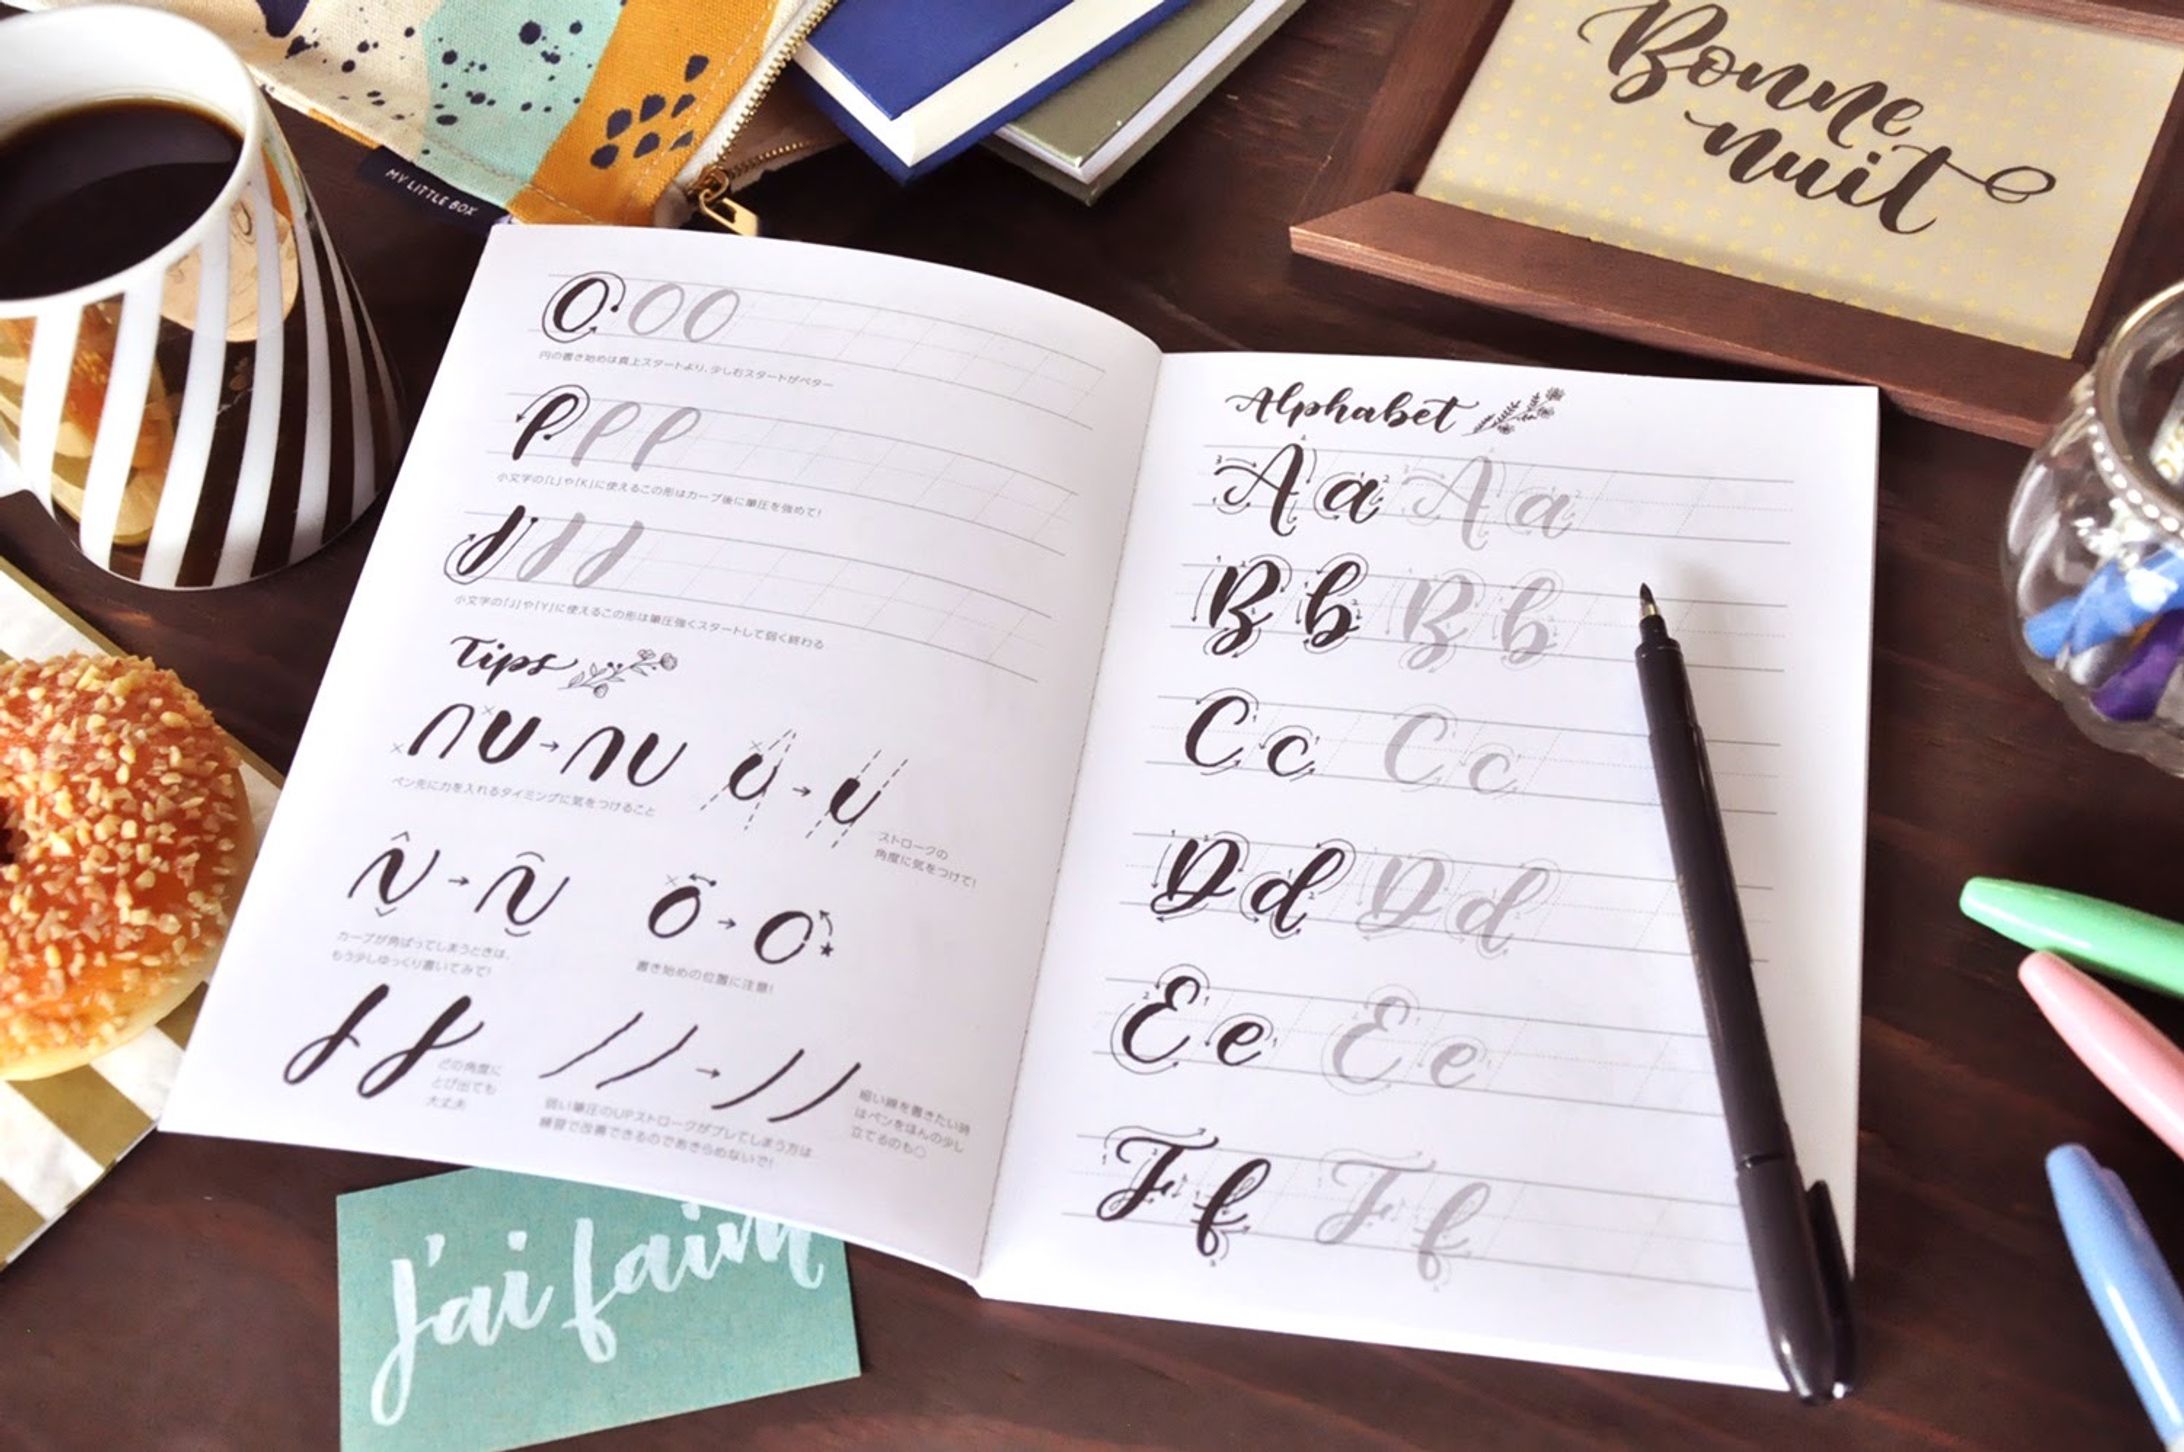 MY LITTLE BOX
Bonne
nuit
O O O
円の書き始めは真上スタートより、少し右スタートがベター
小文字の「L」や「K」に使えるこの形はカーブ後に筆圧を強めて!
小文字の「J」や「Y」に使えるこの形は筆圧強くスタートして弱く終わる
Tips
ペン先に力を入れるタイミングに気をつけること
ストロークの
角度に気をつけて!
カーブが角ばってしまうときは、
もう少しゆっくり書いてみて!
書き始めの位置に注意!
どの角度に
とび出ても
大丈夫
弱い筆圧のUPストロークがブレてしまう方は
練習で改善できるのであきらめないで!
細い線を書きたい時
はペンをほんの少し
立てるのも○
Alphabet
A a A a
B b B b
C c C c
D d D d
E e E e
F f F f
J'ai faim